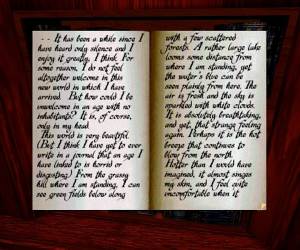 -- It has been a while since I
have heard only silence and I
enjoy it greatly, I think. For
some reason, I do not feel
altogether welcome in this
new world in which I have
arrived. But how could I be
unwelcome in an age with no
inhabitants? It is, of course,
only in my head.
This world is very beautiful.
(But I think I have yet to ever
write in a journal that an age I
have linked to is horrid or
disgusting.) From the grassy
hill where I am standing, I can
see green fields below along
with a few scattered
forests. A rather large lake
looms some distance from
where I am standing, yet
the water's blue can be
seen plainly from here. The
air is fresh and the sky is
sparkled with white clouds.
It is absolutely breathtaking,
and yet, that strange feeling
again. Perhaps it is the hot
breeze that continues to
blow from the north.
Hotter than I would have
imagined, it almost singes
my skin, and I feel quite
uncomfortable when it